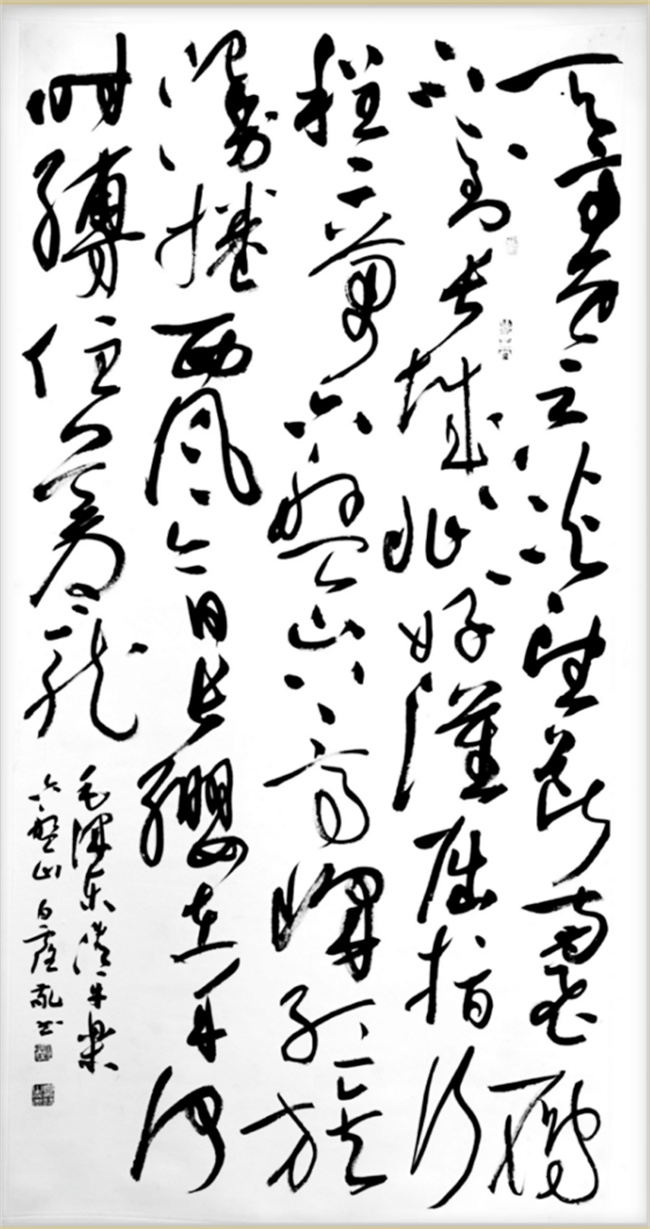 天高云淡望断南飞雁
不到长城非好漢屈指行
程二萬六盘山上高峰红旗
漫捲西风今日长缨在手何
时缚住苍龙
毛泽东清平樂
六盘山